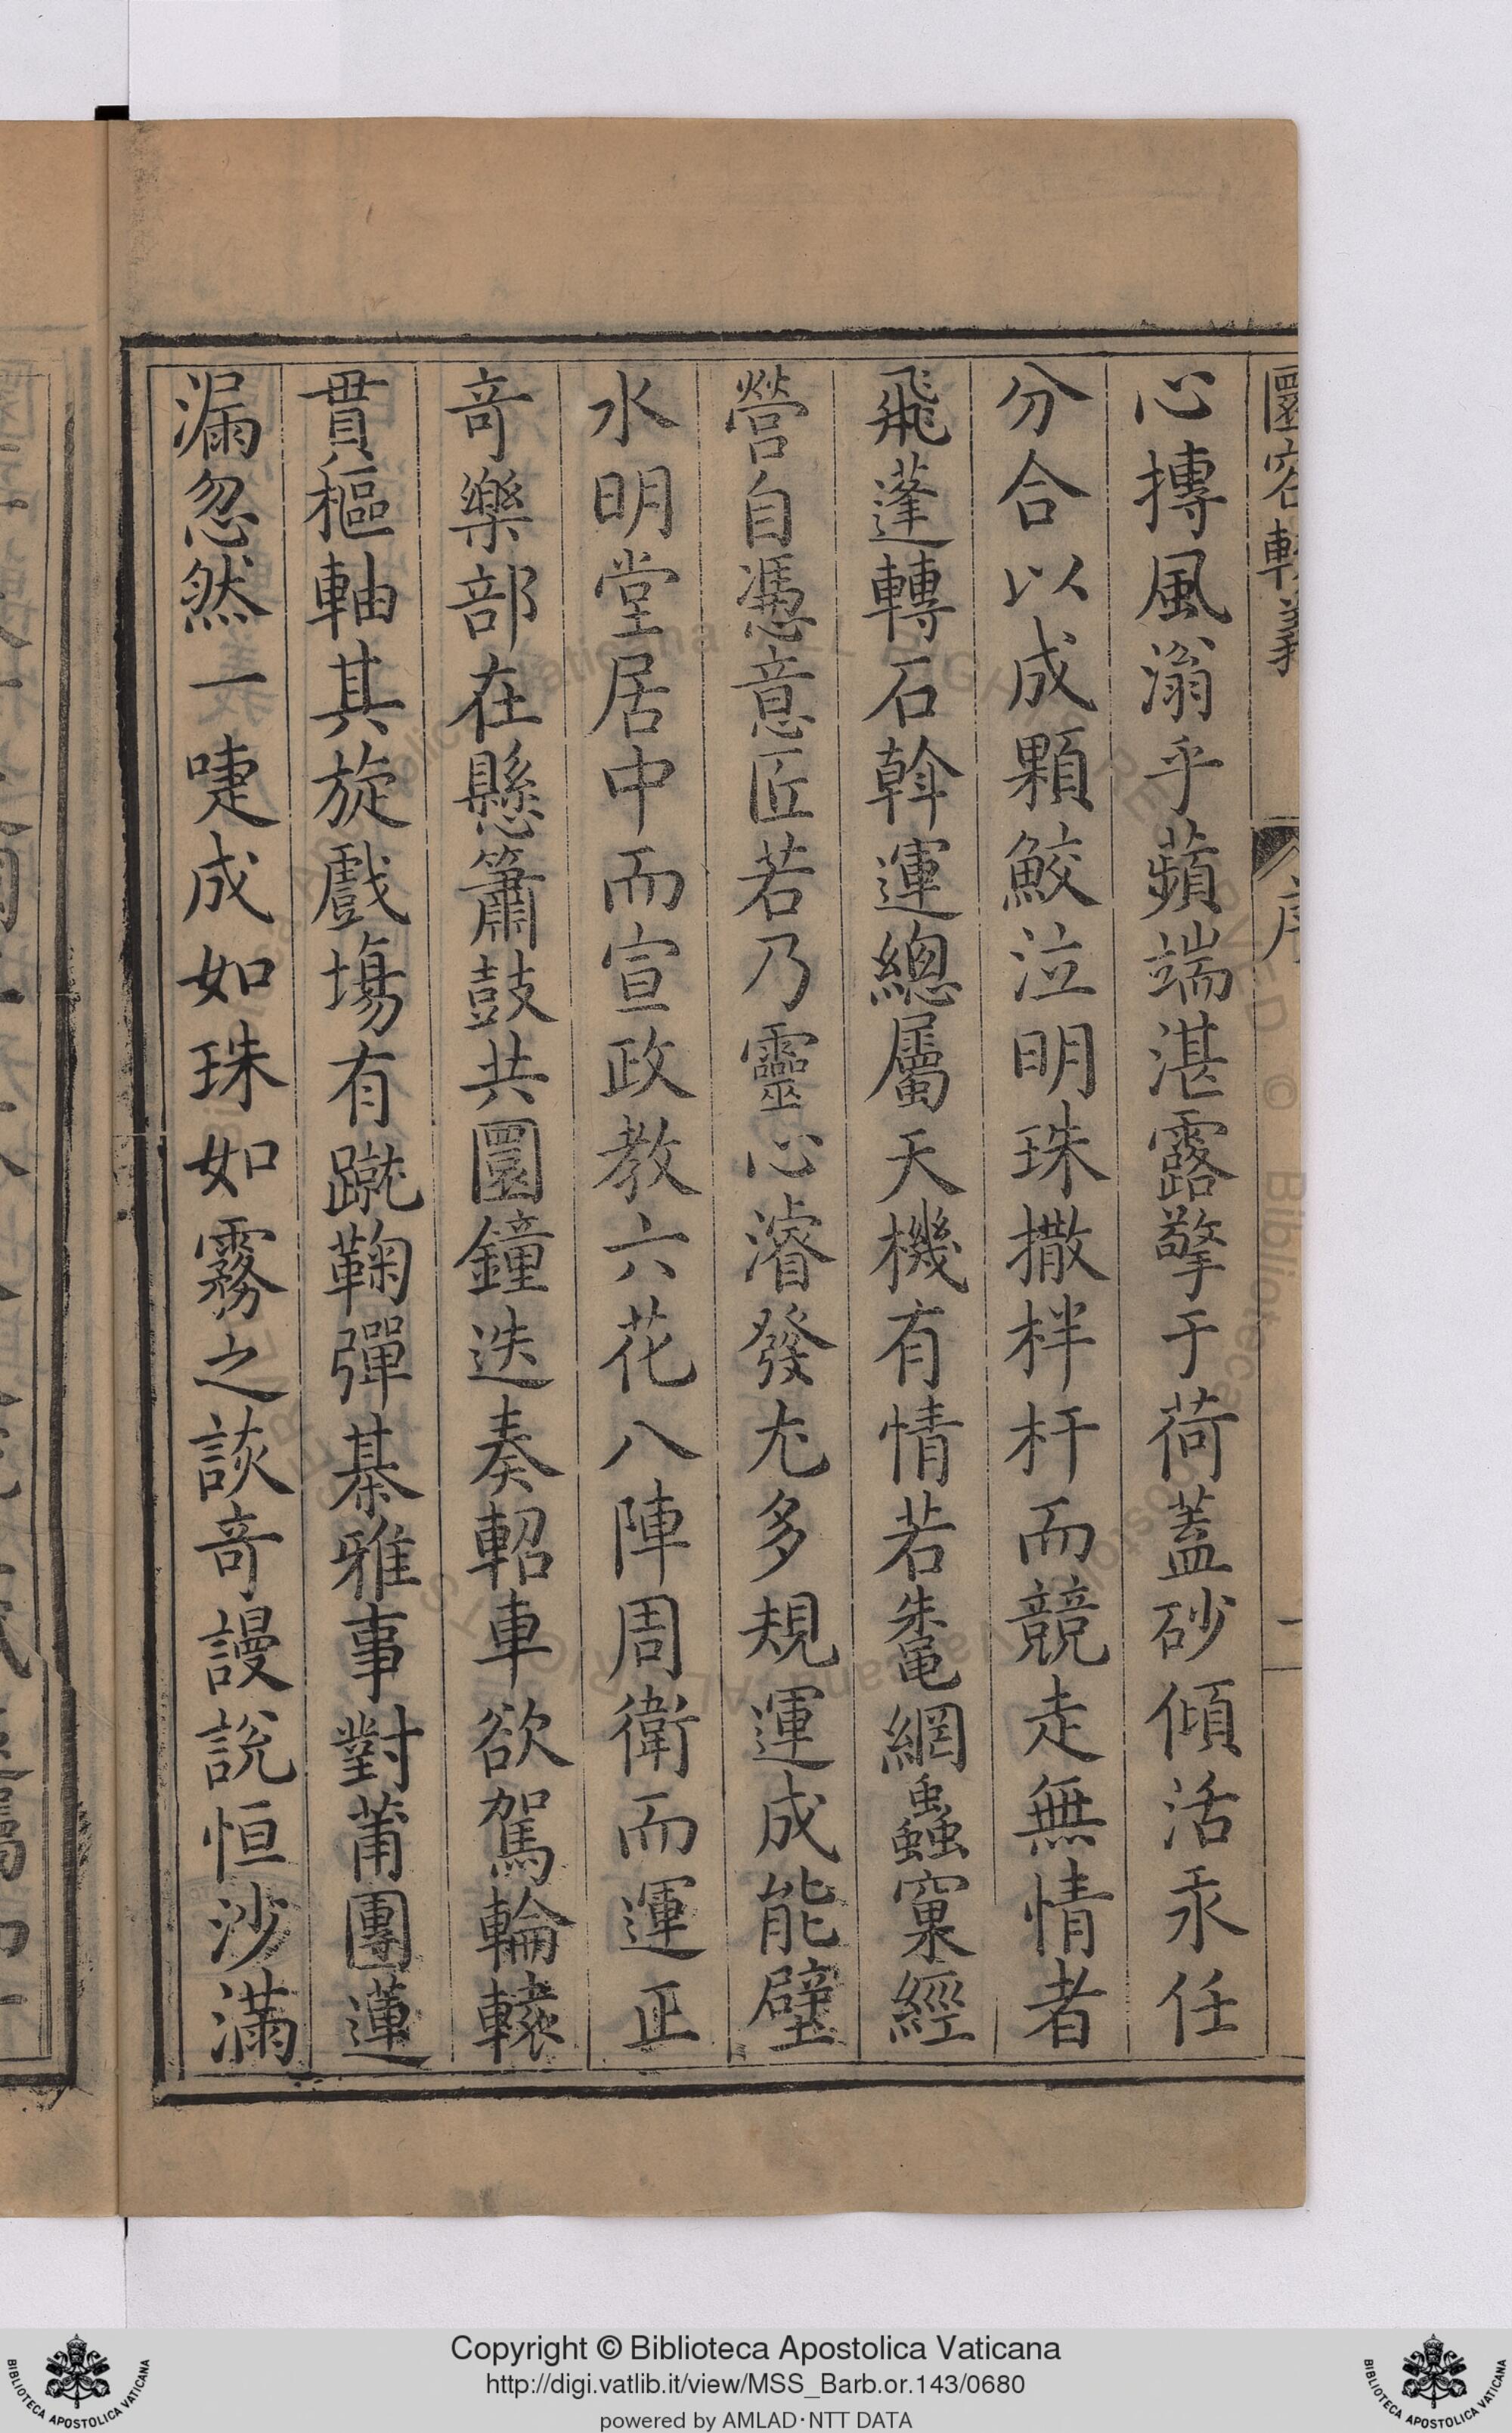 圜容較義 序 一
心摶風滃乎蘋端湛露擎于荷蓋砂傾活汞任
分合以成顆鮫泣明珠撒柈杆而競走無情者
飛蓬轉石斡運總屬天機有情若鼄網蟲窠經
營自憑意匠若乃靈心濬發尤多規運成能壁
水明堂居中而宣政教六花八陣周衛而運正
奇樂部在懸簫鼓共圜鐘迭奏軺車欲駕輪轅
貫樞軸其旋戲塲有蹴鞠彈棊雅事對莆團蓮
漏忽然一啑成如珠如霧之談奇謾說恒沙滿
Copyright © Biblioteca Apostolica Vaticana
http://digi.vatlib.it/view/MSS_Barb.or.143/0680
powered by AMLAD·NTT DATA
BIBLIOTECA APOSTOLICA VATICANA
BIBLIOTECA APOSTOLICA VATICANA